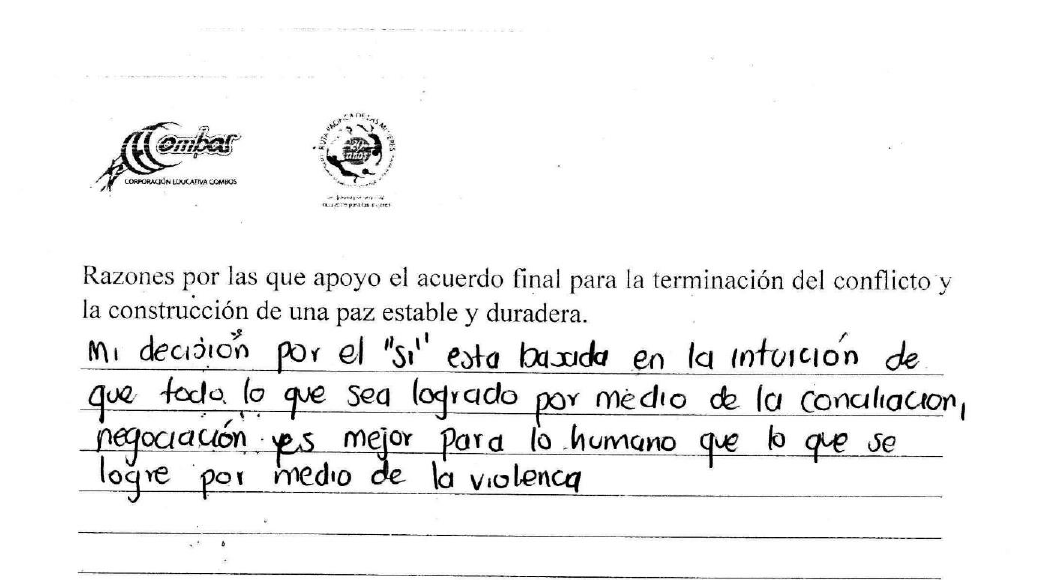 Combos
CORPORACIÓN EDUCATIVA COMBOS
RUTA PACÍFICA DE LAS MUJERES
20 años
Razones por las que apoyo el acuerdo final para la terminación del conflicto y
la construcción de una paz estable y duradera.
Mi decisión por el "si" esta basada en la intuición de
que todo lo que sea logrado por medio de la conciliacion,
negociación es mejor para lo humano que lo que se
logre por medio de la violenca